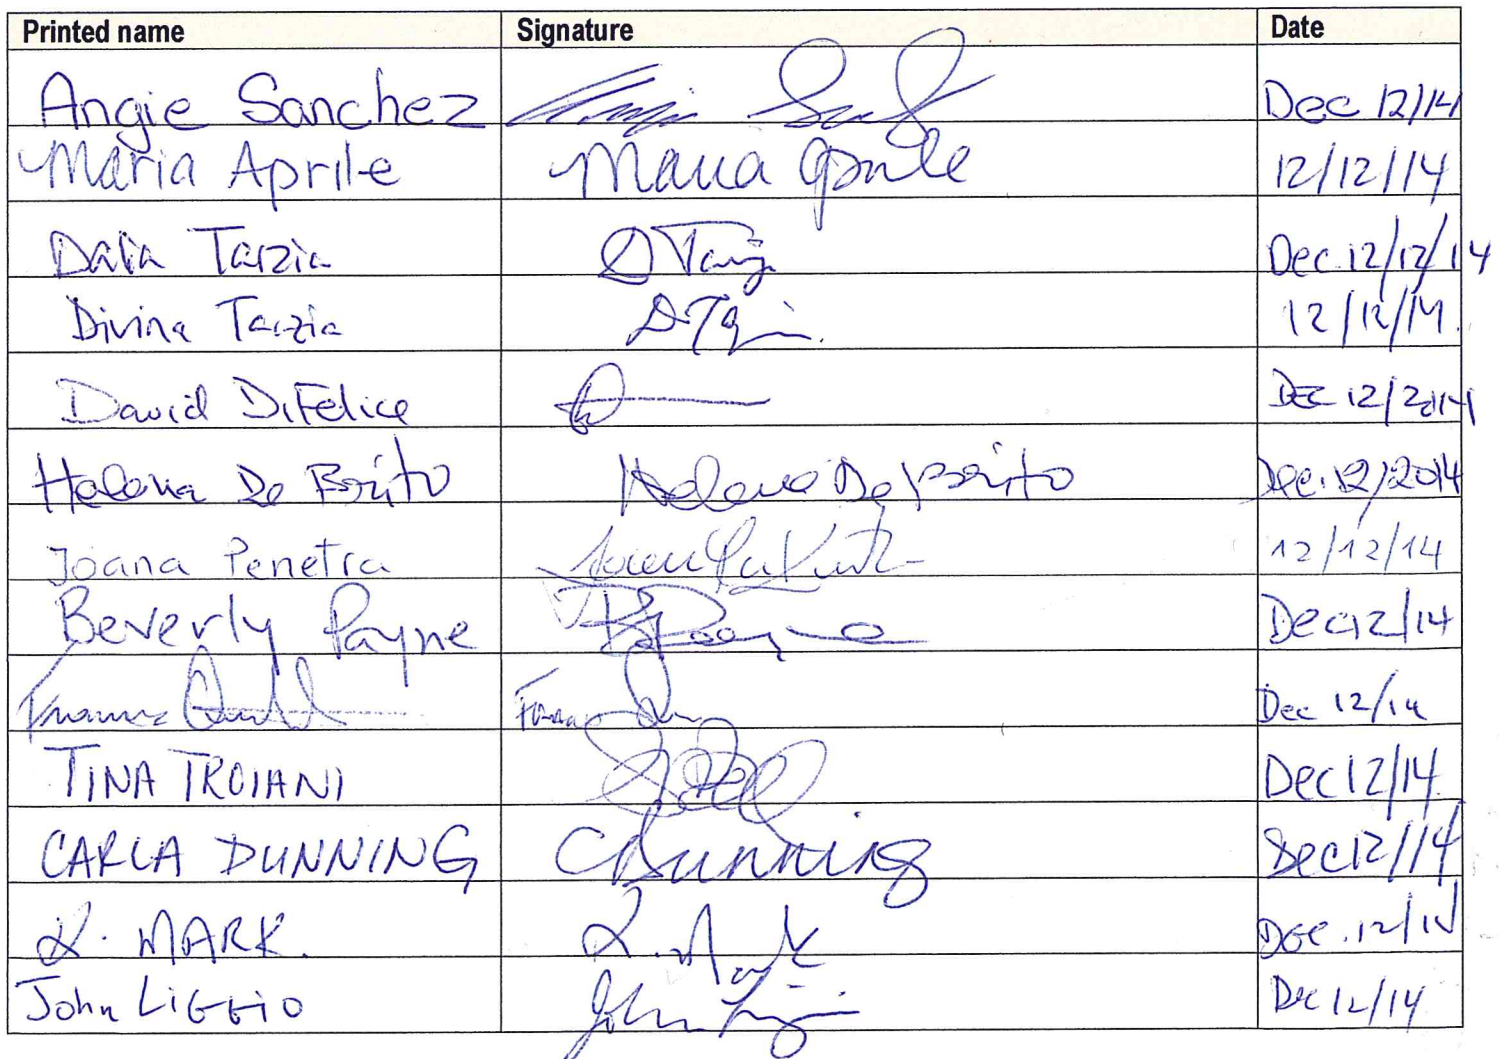 Printed name Signature Date
Angie Sanchez Dec 12/14
Maria Aprile Maria Aprile 12/12/14
Dalia Tarzia D Tarzia Dec 12/12/14
Divina Tarzia 12/12/14.
David DiFelice DEC 12/2014
Helena De Brito Helena De Brito Dec. 12/2014
Joana Penetra 12/12/14
Beverly Payne B Payne Dec 12/14
Dec 12/14
TINA TROIANI Dec 12/14
CARLA DUNNING C Dunning Dec 12/14
K. MARK. K. Mark Dec. 12/14
John LiGGiO John Liggio Dec 12/14